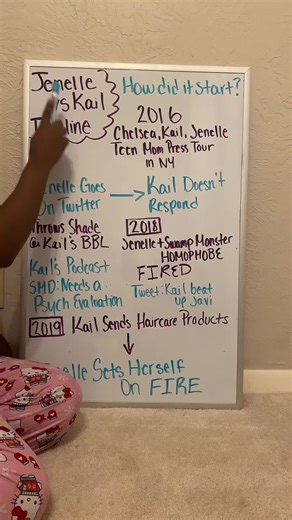 Jenelle
vs Kail
How did it start?
2016
Chelsea, Kail, Jenelle
Teen Mom Press Tour
in NY
Jenelle Goes
On Twitter
Kail Doesn't
Respond
Throws Shade
@ Kail's BBL
2018
Jenelle + Swamp Monster
HOMOPHOBE
FIRED
Kail's Podcast
SMD: Needs a
Psych Evaluation
Tweet: Kail beat
up Javi
2019 Kail Sends Haircare Products
Sets Herself
On FIRE